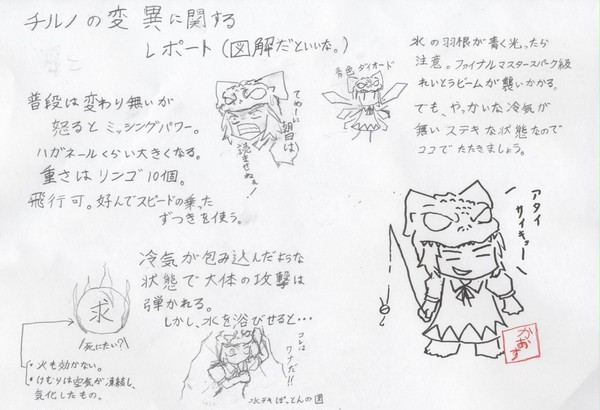 チルノの変異に関する
レポート(図解だといいな。)
普段は変わり無いが
怒るとミッシングパワー。
ハガネールくらい大きくなる。
重さはリンゴ10個。
飛行可。好んでスピードの乗った
ずつきを使う。
てめーに
明日は
読ませねぇ!
青色ダイオード
氷の羽根が青く光ったら
注意。ファイナルマスタースパーク級
れいとうビームが襲いかかる。
でも、やっかいな冷気が
無いステキな状態なので
ココでたたきましょう。
アタイ
サイキョー
かあす
冷気が包み込んだような
状態で大体の攻撃は
弾かれる。
しかし、水を浴びせると…
コレは
ワナだ!!
水テキぽっとんの図
求
死にたい?
・火も効かない。
・けむりは空気が凍結し、
気化したもの。